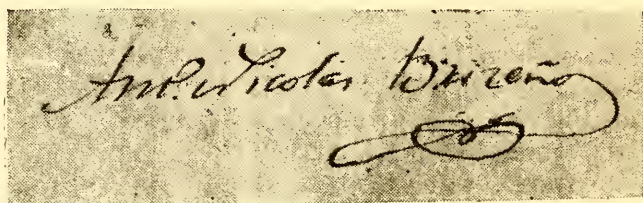 Ant. Nicolas Briceño